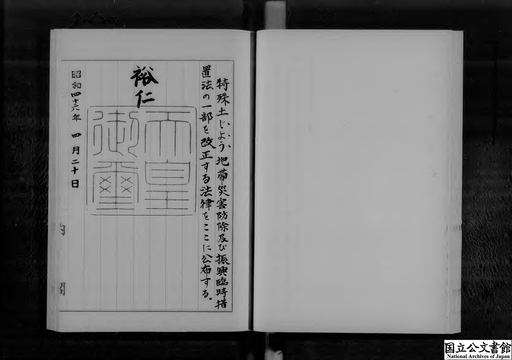 特殊土じよう地帯災害防除及び振興臨時措
置法の一部を改正する法律をここに公布する。
裕仁
天皇
御璽
昭和四十六年四月二十日
内
閣
国立公文書館
National Archives of Japan